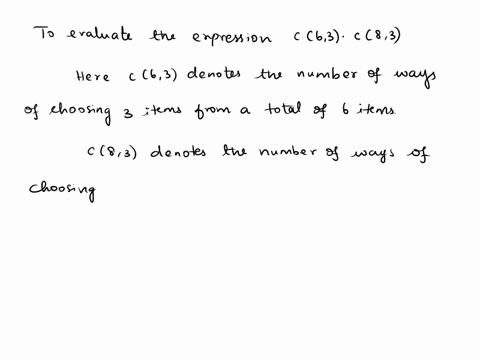 To evaluate the expression c(6,3) · c(8,3)
Here c(6,3) denotes the number of ways
of choosing 3 items from a total of 6 items.
c(8,3) denotes the number of ways of
choosing